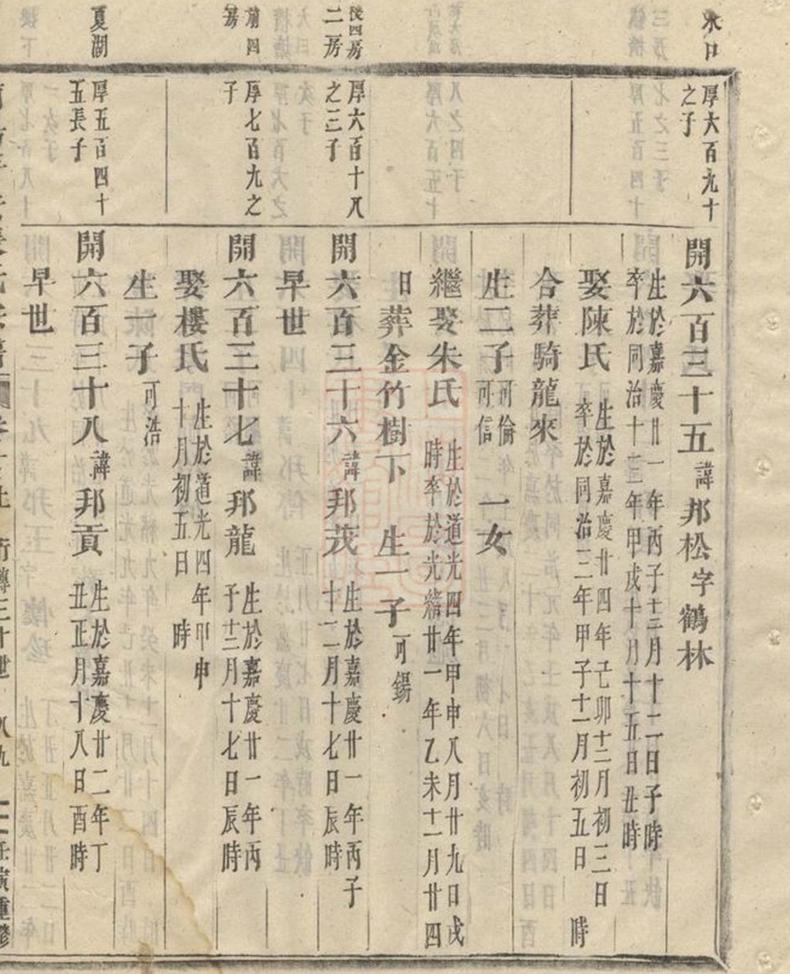 水口
厚六百九十
之子
開六百三十五諱邦松字鶴林
生於嘉慶廿一年丙子十二月十二日子時
卒於同治十三年甲戌十月十五日丑時
娶陳氏
生於嘉慶廿四年己卯十二月初三日 時
卒於同治三年甲子十一月初五日
合葬騎龍來
生二子
可倫
可信
一女
繼娶朱氏
生於道光四年甲申八月廿九日戌
時卒於光緒廿一年乙未十一月廿四
日葬金竹樹下 生一子可錫
後四房
二房
厚六百十八
之三子
開六百三十六諱邦茂
生於嘉慶廿一年丙子
十二月十七日辰時
早世
前四
房
厚七百九之
子
開六百三十七諱邦龍
生於嘉慶廿一年丙
子十二月十七日辰時
娶樓氏
生於道光四年甲申
十月初五日 時
生一子可浩
夏湖
厚五百四十
五長子
開六百三十八諱邦貢
生於嘉慶廿二年丁
丑正月十八日酉時
早世